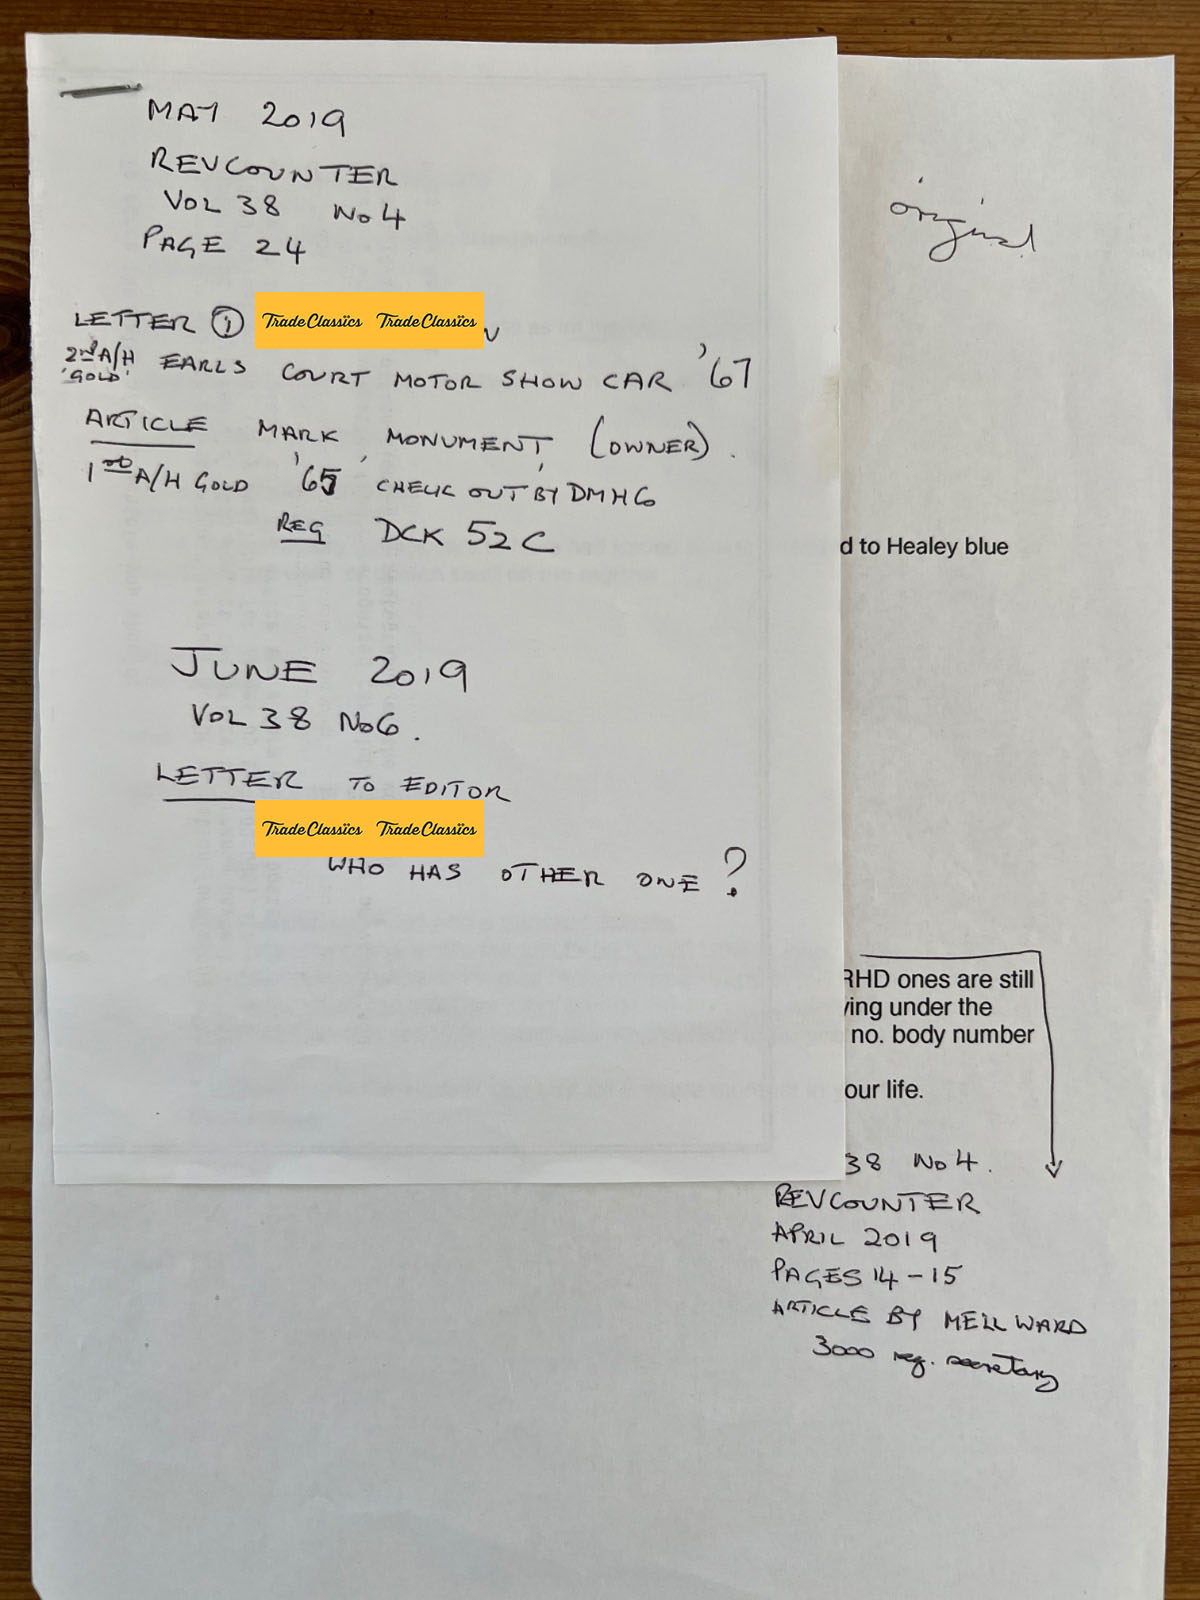 MAY 2019
REVCOUNTER
VOL 38 No 4
PAGE 24
LETTER ① TradeClassics TradeClassics N
2nd A/H 'GOLD' EARLS COURT MOTOR SHOW CAR '67
ARTICLE MARK MONUMENT (OWNER).
1st A/H GOLD '65 CHECK OUT BY DMHG
REG DCK 52C
JUNE 2019
VOL 38 No6.
LETTER TO EDITOR
TradeClassics TradeClassics
WHO HAS OTHER ONE?
original
d to Healey blue
RHD ones are still
ying under the
no. body number
our life.
38 No 4.
REVCOUNTER
APRIL 2019
PAGES 14-15
ARTICLE BY MELL WARD
3000 reg. secretary